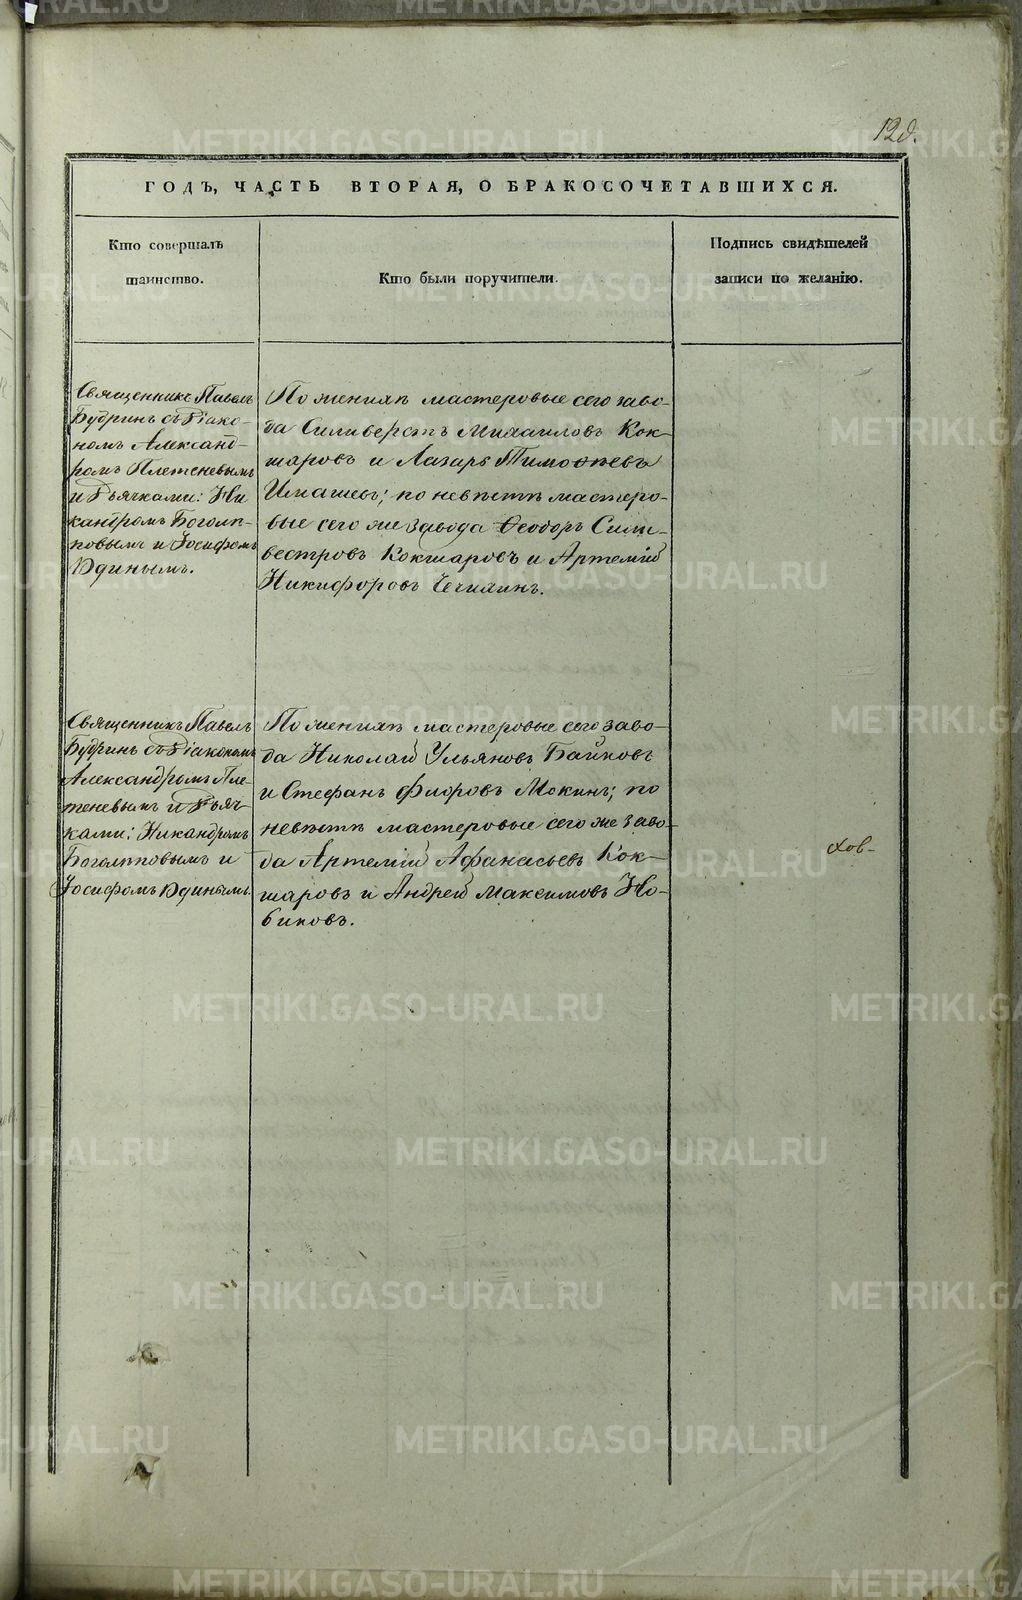 120.
ГОДЪ, ЧАСТЬ ВТОРАЯ, О БРАКОСОЧЕТАВШИХСЯ.
Кто совершалъ
таинство.
Кто были поручители.
Подпись свидѣтелей
записи по желанію.
Священникъ Павелъ
Будринъ съ Діако-
номъ Александ-
ромъ Плетеневымъ
и Дьячками: Ни
кандромъ Боголѣ-
повымъ и Іосифомъ
Юдинымъ.
По женихѣ мастеровые сего заво-
да Силиверстъ Михаиловъ Кок-
шаровъ и Лазарь Тимоѳѣевъ
по невѣстѣ мастеро-
вые сего же завода Ѳеодоръ Сили-
вестровъ Кокшаровъ и Артемій
Никифоровъ
Священникъ Павелъ
Будринъ съ Діакономъ
Александромъ Пле-
теневымъ и Дьяч-
ками: Никандромъ
Боголѣповымъ и
Іосифомъ Юдинымъ.
По женихѣ мастеровые сего заво-
да Николай Ульяновъ Байновъ
и Стефанъ Флоровъ Мокинъ; по
невѣстѣ мастеровые сего же заво-
да Артемій Афанасьевъ Кок-
шаровъ и Андрей Максимовъ Но-
виковъ.
хов-
METRIKI.GASO-URAL.RU